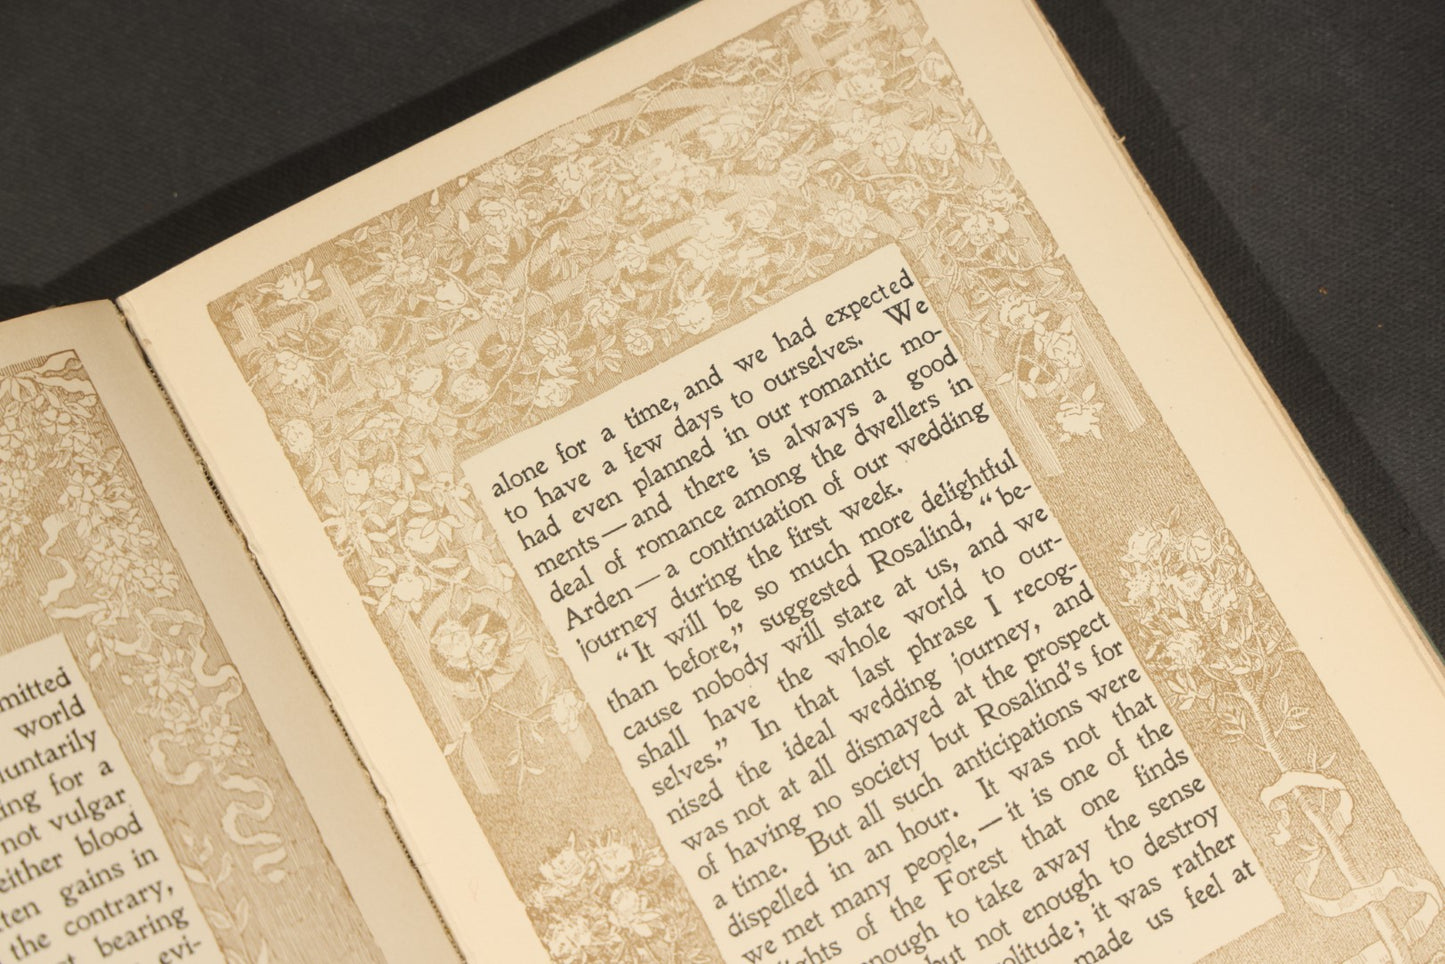 mitted
world
luntarily
ing for a
not vulgar
either blood
ten gains in
the contrary,
bearing
evi-
alone for a time, and we had expected
to have a few days to ourselves. We
had even planned in our romantic mo-
ments—and there is always a good
deal of romance among the dwellers in
Arden—a continuation of our wedding
journey during the first week.
“It will be so much more delightful
than before,” suggested Rosalind, “be-
cause nobody will stare at us, and we
shall have the whole world to our-
selves.” In that last phrase I recog-
nised the ideal wedding journey, and
was not at all dismayed at the prospect
of having no society but Rosalind’s for
a time. But all such anticipations were
dispelled in an hour. It was not that
we met many people,—it is one of the
lights of the Forest that one finds
nough to take away the sense
but not enough to destroy
olitude; it was rather
made us feel at